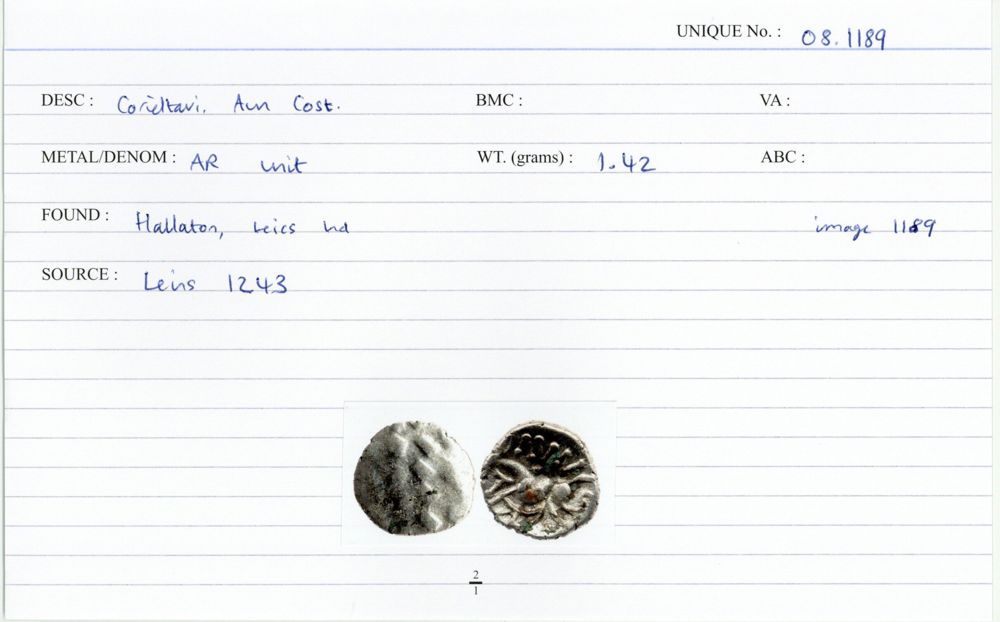 UNIQUE No. : 08.1189
DESC : Corieltavi. Aun Cost. BMC : VA :
METAL/DENOM : AR unit WT. (grams) : 1.42 ABC :
FOUND : Hallaton, Leics hd image 1189
SOURCE : Leins 1243
2
1